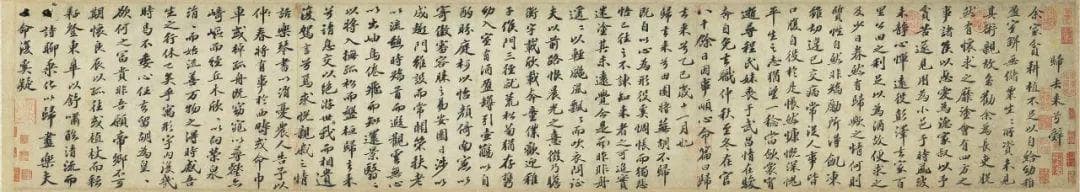 歸去來兮辭
余家貧耕植不足以自給幼稚
盈室缾無儲粟生生所資未見
其術親故多勸余為長吏脫
然有懷求之靡塗會有四方之
事諸侯以惠愛為德家叔以予
貧苦遂見用為小邑于時風波
未靜心憚遠役彭澤去家百
里公田之利足以為酒故便求之
及少日眷然有歸歟之情何則
質性自然非矯厲所得飢凍
雖切違己交病嘗從人事皆
口腹自役於是悵然慷慨深愧
平生之志猶望一稔當斂裳宵
逝尋程氏妹喪于武昌情在駿
奔自免去職仲秋至冬在官
八十餘日因事順心命篇曰歸
去來兮乙巳歲十一月也
歸去來兮田園將蕪胡不歸
既自以心為形役奚惆悵而獨
悲悟已往之不諫知來者之可追實
迷塗其未遠覺今是而昨非舟
遙遙以輕颺風飄飄而吹衣問征
夫以前路恨晨光之熹微乃瞻
衡宇載欣載奔僮僕歡迎稚
子候門三徑就荒松菊猶存攜
幼入室有酒盈罇引壺觴以自
酌眄庭柯以怡顏倚南窗以
寄傲審容膝之易安園日涉以
成趣門雖設而常關策扶老
以流憩時矯首而遐觀雲無心
以出岫鳥倦飛而知還景翳翳
以將入撫孤松而盤桓歸去來
兮請息交以絕游世與我而相遺
復駕言兮焉求悅親戚之情
話樂琴書以消憂農人告予以
仲春將有事於西疇或命巾
車或棹孤舟既窈窕以尋壑亦
崎嶇而經丘木欣欣以向榮泉
涓涓而始流善萬物之得時感吾
生之行休已矣乎寓形宇內復幾
時曷不委心任去留胡為遑遑
欲何之富貴非吾願帝鄉不可
期懷良辰以孤往或植杖而耘
耔登東皋以舒嘯臨清流而
賦詩聊乘化以歸盡樂夫
天命復奚疑